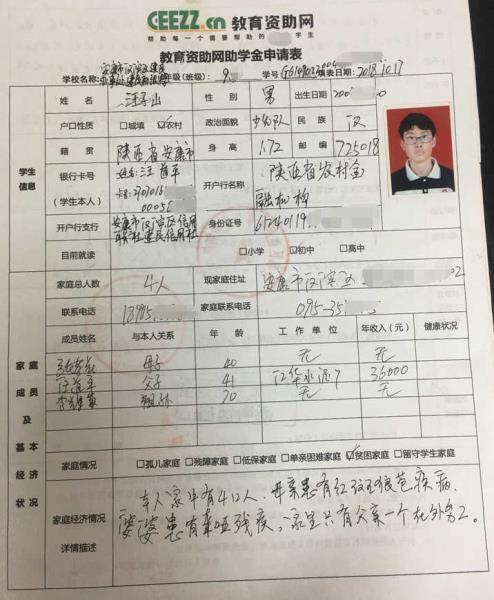 CEEZZ.cn 教育资助网
帮助每一个需要帮助的 学生
教育资助网助学金申请表
学校名称: 年级(班级): 9 学号: 填表日期: 2018.10.17
学生信息
姓名 汪 性别 男 出生日期 200
户口性质 □城填 ☑农村 政治面貌 少先队 民族 汉
籍贯 陕西省安康市 身高 1.72 邮编 725018
银行卡号 (学生本人) 姓名: 汪 平 开户行名称 陕西省农村金
融机构
开户行支行 安康市汉滨区信用 身份证号 6124019
联社 信用社
目前就读 □小学 □初中 □高中
家庭成员及基本经济状况
家庭总人数 4人 现家庭住址 安康市汉滨区 02
联系电话 家庭联系电话
成员姓名 与本人关系 年龄 工作单位 年收入(元) 健康状况
母子 40 无 无
父子 41 江华水泥厂 36000
李 祖孙 70 无 无
家庭情况 □孤儿家庭 □残障家庭 □低保家庭 □单亲困难家庭 ☑贫困家庭 □留守学生家庭
家庭经济情况
详情描述
本人家中有4口人,母亲患有红斑狼苍疾病,
婆婆患有聋哑残疾,家里只有父亲一个在外务工。